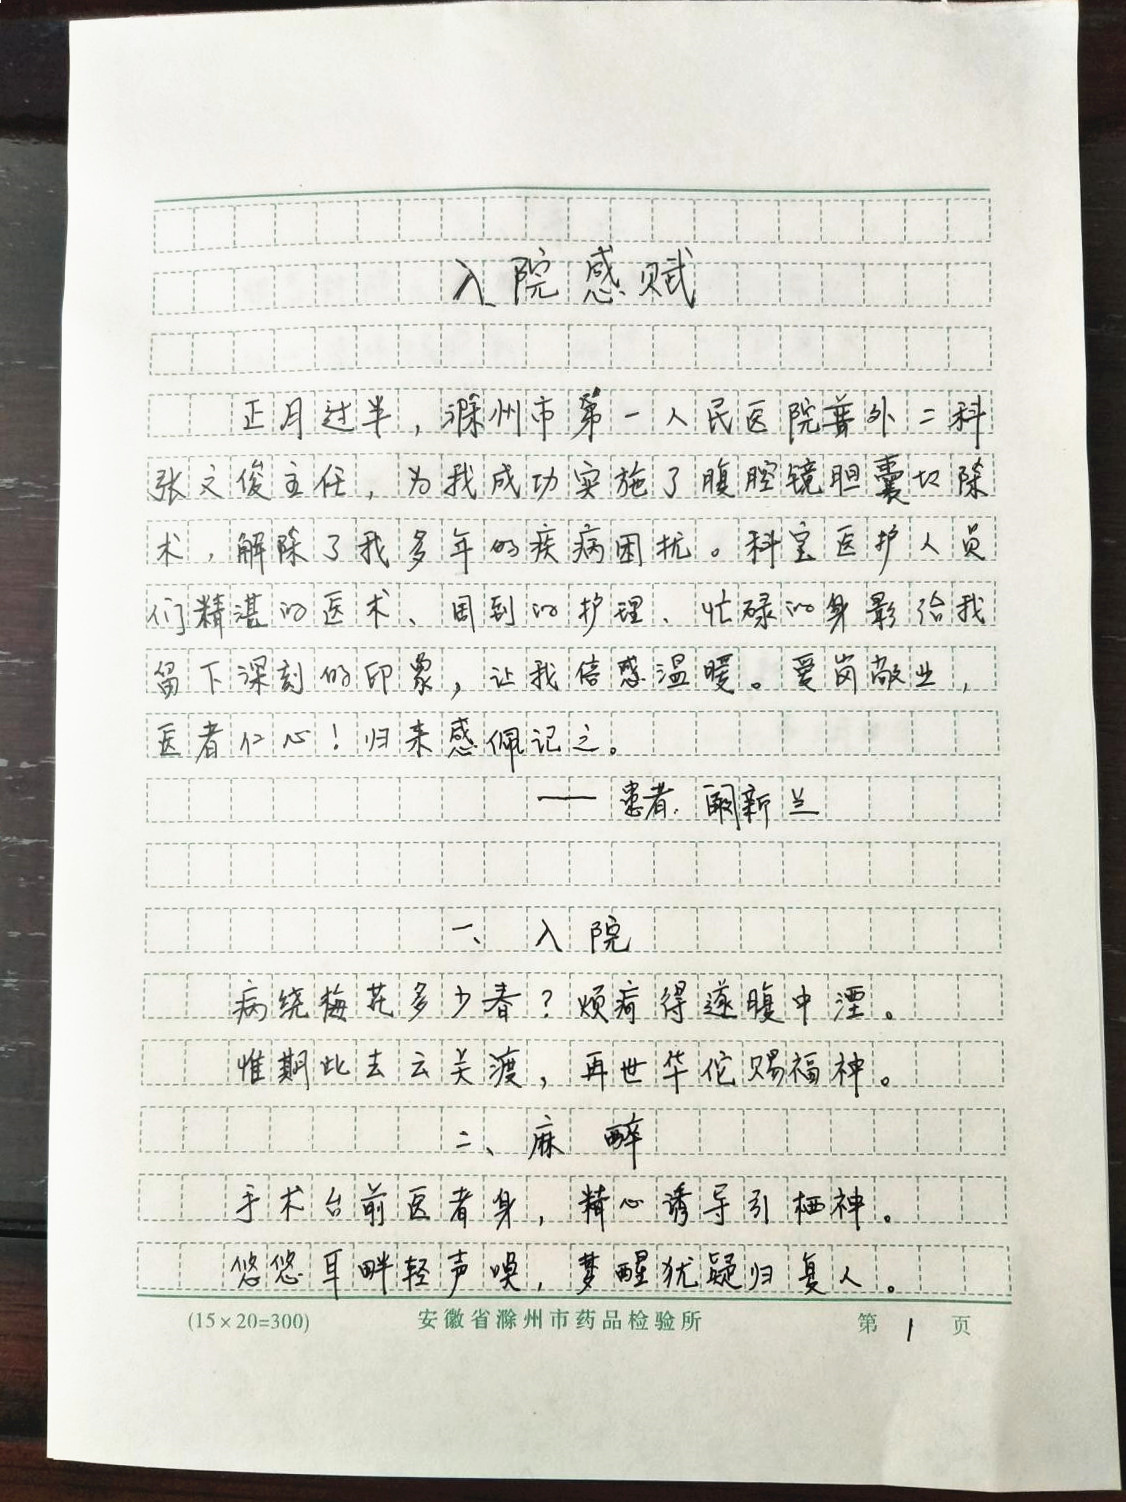 入院感赋
正月过半，滁州市第一人民医院普外二科
张文俊主任，为我成功实施了腹腔镜胆囊切除
术，解除了我多年的疾病困扰。科室医护人员
们精湛的医术、周到的护理、忙碌的身影给我
留下深刻的印象，让我倍感温暖。爱岗敬业，
医者仁心！归来感佩记之。
——患者：阚新兰
一、入院
病绕梅花多少春？烦疴得遂腹中湮。
惟期此去云关渡，再世华佗赐福神。
二、麻醉
手术台前医者身，精心诱导引栖神。
悠悠耳畔轻声唤，梦醒犹疑归复人。
(15×20=300) 安徽省滁州市药品检验所 第 1 页